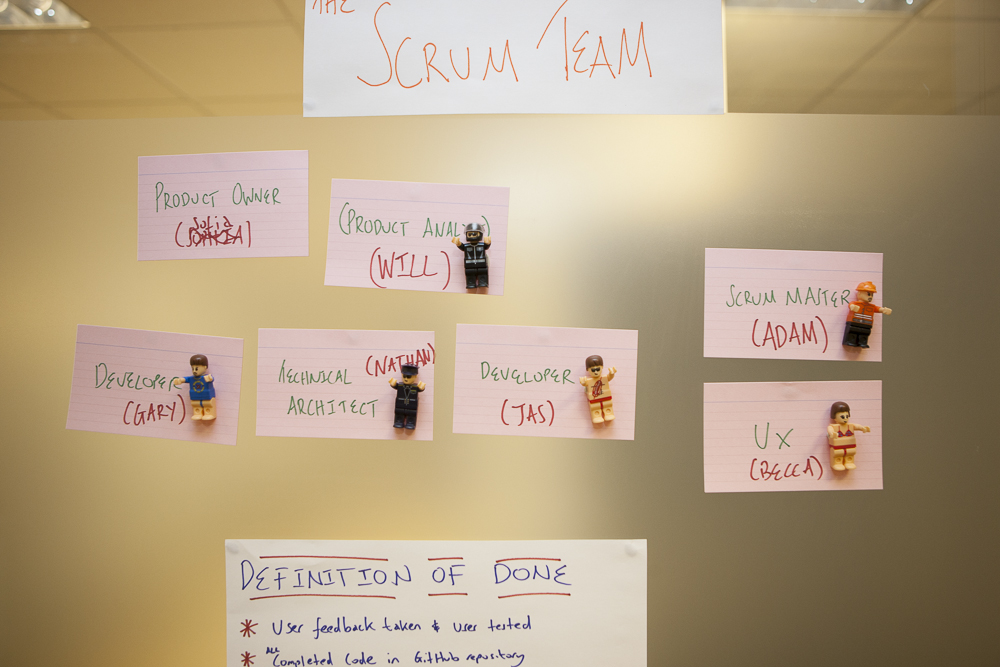 THE
SCRUM TEAM
PRODUCT OWNER
Julia
(PRODUCT ANALYST)
(WILL)
SCRUM MASTER
(ADAM)
DEVELOPER
(GARY)
(NATHAN)
TECHNICAL
ARCHITECT
DEVELOPER
(JAS)
UX
(BECCA)
DEFINITION OF DONE
* User feedback taken & user tested
ALL
* Completed code in GitHub repository